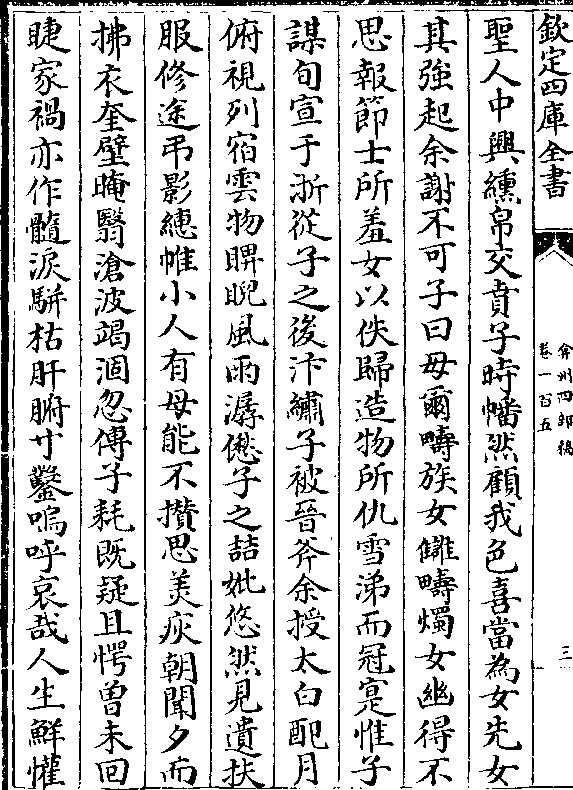 欽定四庫全書
弇州四部稿
卷一百五
三
聖人中興纁帛交賁子時幡然顧我色喜當為女先女
其強起余謝不可子曰毋爾疇族女讎疇燭女幽得不
思報節士所羞女以佚歸造物所仇雪涕而冠寔惟子
謀旬宣于浙從子之後汴繡子被晉斧余授太白配月
俯視列宿雲物睥睨風雨潺僽子之喆妣悠然見遺扶
服修途弔影繐帷小人有母能不攢思美疢朝聞夕而
拂衣奎壁晻翳滄波竭涸忽傳子耗既疑且愕曾未回
睫家禍亦作髓淚駢枯肝腑寸鑿嗚呼哀哉人生鮮懽